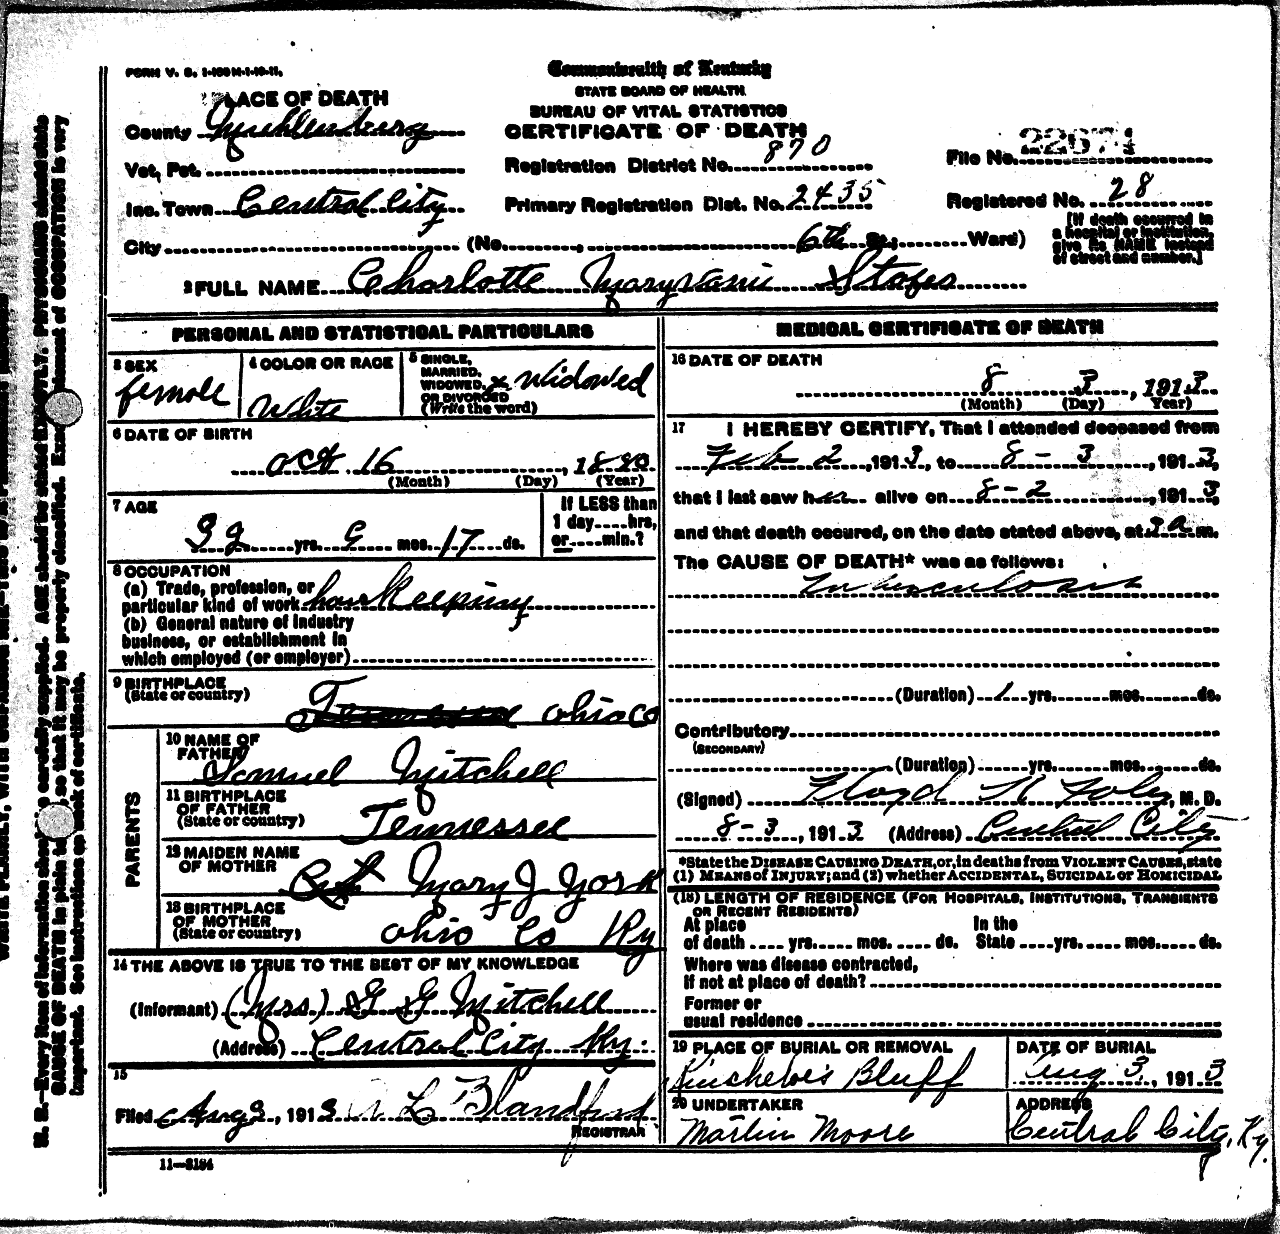 FORM V. S. 1-100M-1-10-11.
Commonwealth of Kentucky
STATE BOARD OF HEALTH
BUREAU OF VITAL STATISTICS
CERTIFICATE OF DEATH
PLACE OF DEATH
County Muhlenberg
Vot. Pct.
Inc. Town Central City
City (No. , 6th St.; Ward)
Registration District No. 870
Primary Registration Dist. No. 2435
File No. 22671
Registered No. 28
[If death occurred in
a hospital or institution,
give its NAME instead
of street and number.]
2 FULL NAME Charlotte
PERSONAL AND STATISTICAL PARTICULARS
3 SEX
female
4 COLOR OR RACE
White
5 SINGLE,
MARRIED,
WIDOWED, x Widowed
OR DIVORCED
(Write the word)
6 DATE OF BIRTH
Oct 16, 1880
(Month) (Day) (Year)
7 AGE
32 yrs. 9 mos. 17 ds.
If LESS than
1 day....hrs,
or....min.?
8 OCCUPATION
(a) Trade, profession, or
particular kind of work housekeeping
(b) General nature of industry
business, or establishment in
which employed (or employer)
9 BIRTHPLACE
(State or country)
Tennessee Ohio Co
PARENTS
10 NAME OF
FATHER
Samuel Mitchell
11 BIRTHPLACE
OF FATHER
(State or country)
Tennessee
12 MAIDEN NAME
OF MOTHER
Mary J York
13 BIRTHPLACE
OF MOTHER
(State or country)
Ohio Co Ky
14 THE ABOVE IS TRUE TO THE BEST OF MY KNOWLEDGE
(Informant) (Mrs) G G Mitchell
(Address) Central City Ky.
15
Filed Aug 3, 1913 L Blandford
REGISTRAR
11—3184
MEDICAL CERTIFICATE OF DEATH
16 DATE OF DEATH
8 3, 1913
(Month) (Day) Year)
17 I HEREBY CERTIFY, That I attended deceased from
Feb 2, 1913, to 8 - 3, 1913,
that I last saw her alive on 8-2, 1913,
and that death occured, on the date stated above, at 3 a m.
The CAUSE OF DEATH* was as follows:
Tuberculosis
(Duration) 1 yrs. mos. ds.
Contributory
(SECONDARY)
(Duration) yrs. mos. ds.
(Signed) Floyd N Foley, M. D.
8-3, 1913 (Address) Central City
*State the DISEASE CAUSING DEATH, or, in deaths from VIOLENT CAUSES, state
(1) MEANS of INJURY; and (2) whether ACCIDENTAL, SUICIDAL or HOMICIDAL
(18) LENGTH OF RESIDENCE (FOR HOSPITALS, INSTITUTIONS, TRANSIENTS
OR RECENT RESIDENTS)
At place In the
of death .... yrs. .... mos. .... ds. State .... yrs. .... mos. .... ds.
Where was disease contracted,
If not at place of death?
Former or
usual residence
19 PLACE OF BURIAL OR REMOVAL
Kincheloe's Bluff
DATE OF BURIAL
Aug 3, 1913
20 UNDERTAKER
Martin Moore
ADDRESS
Central City, Ky.